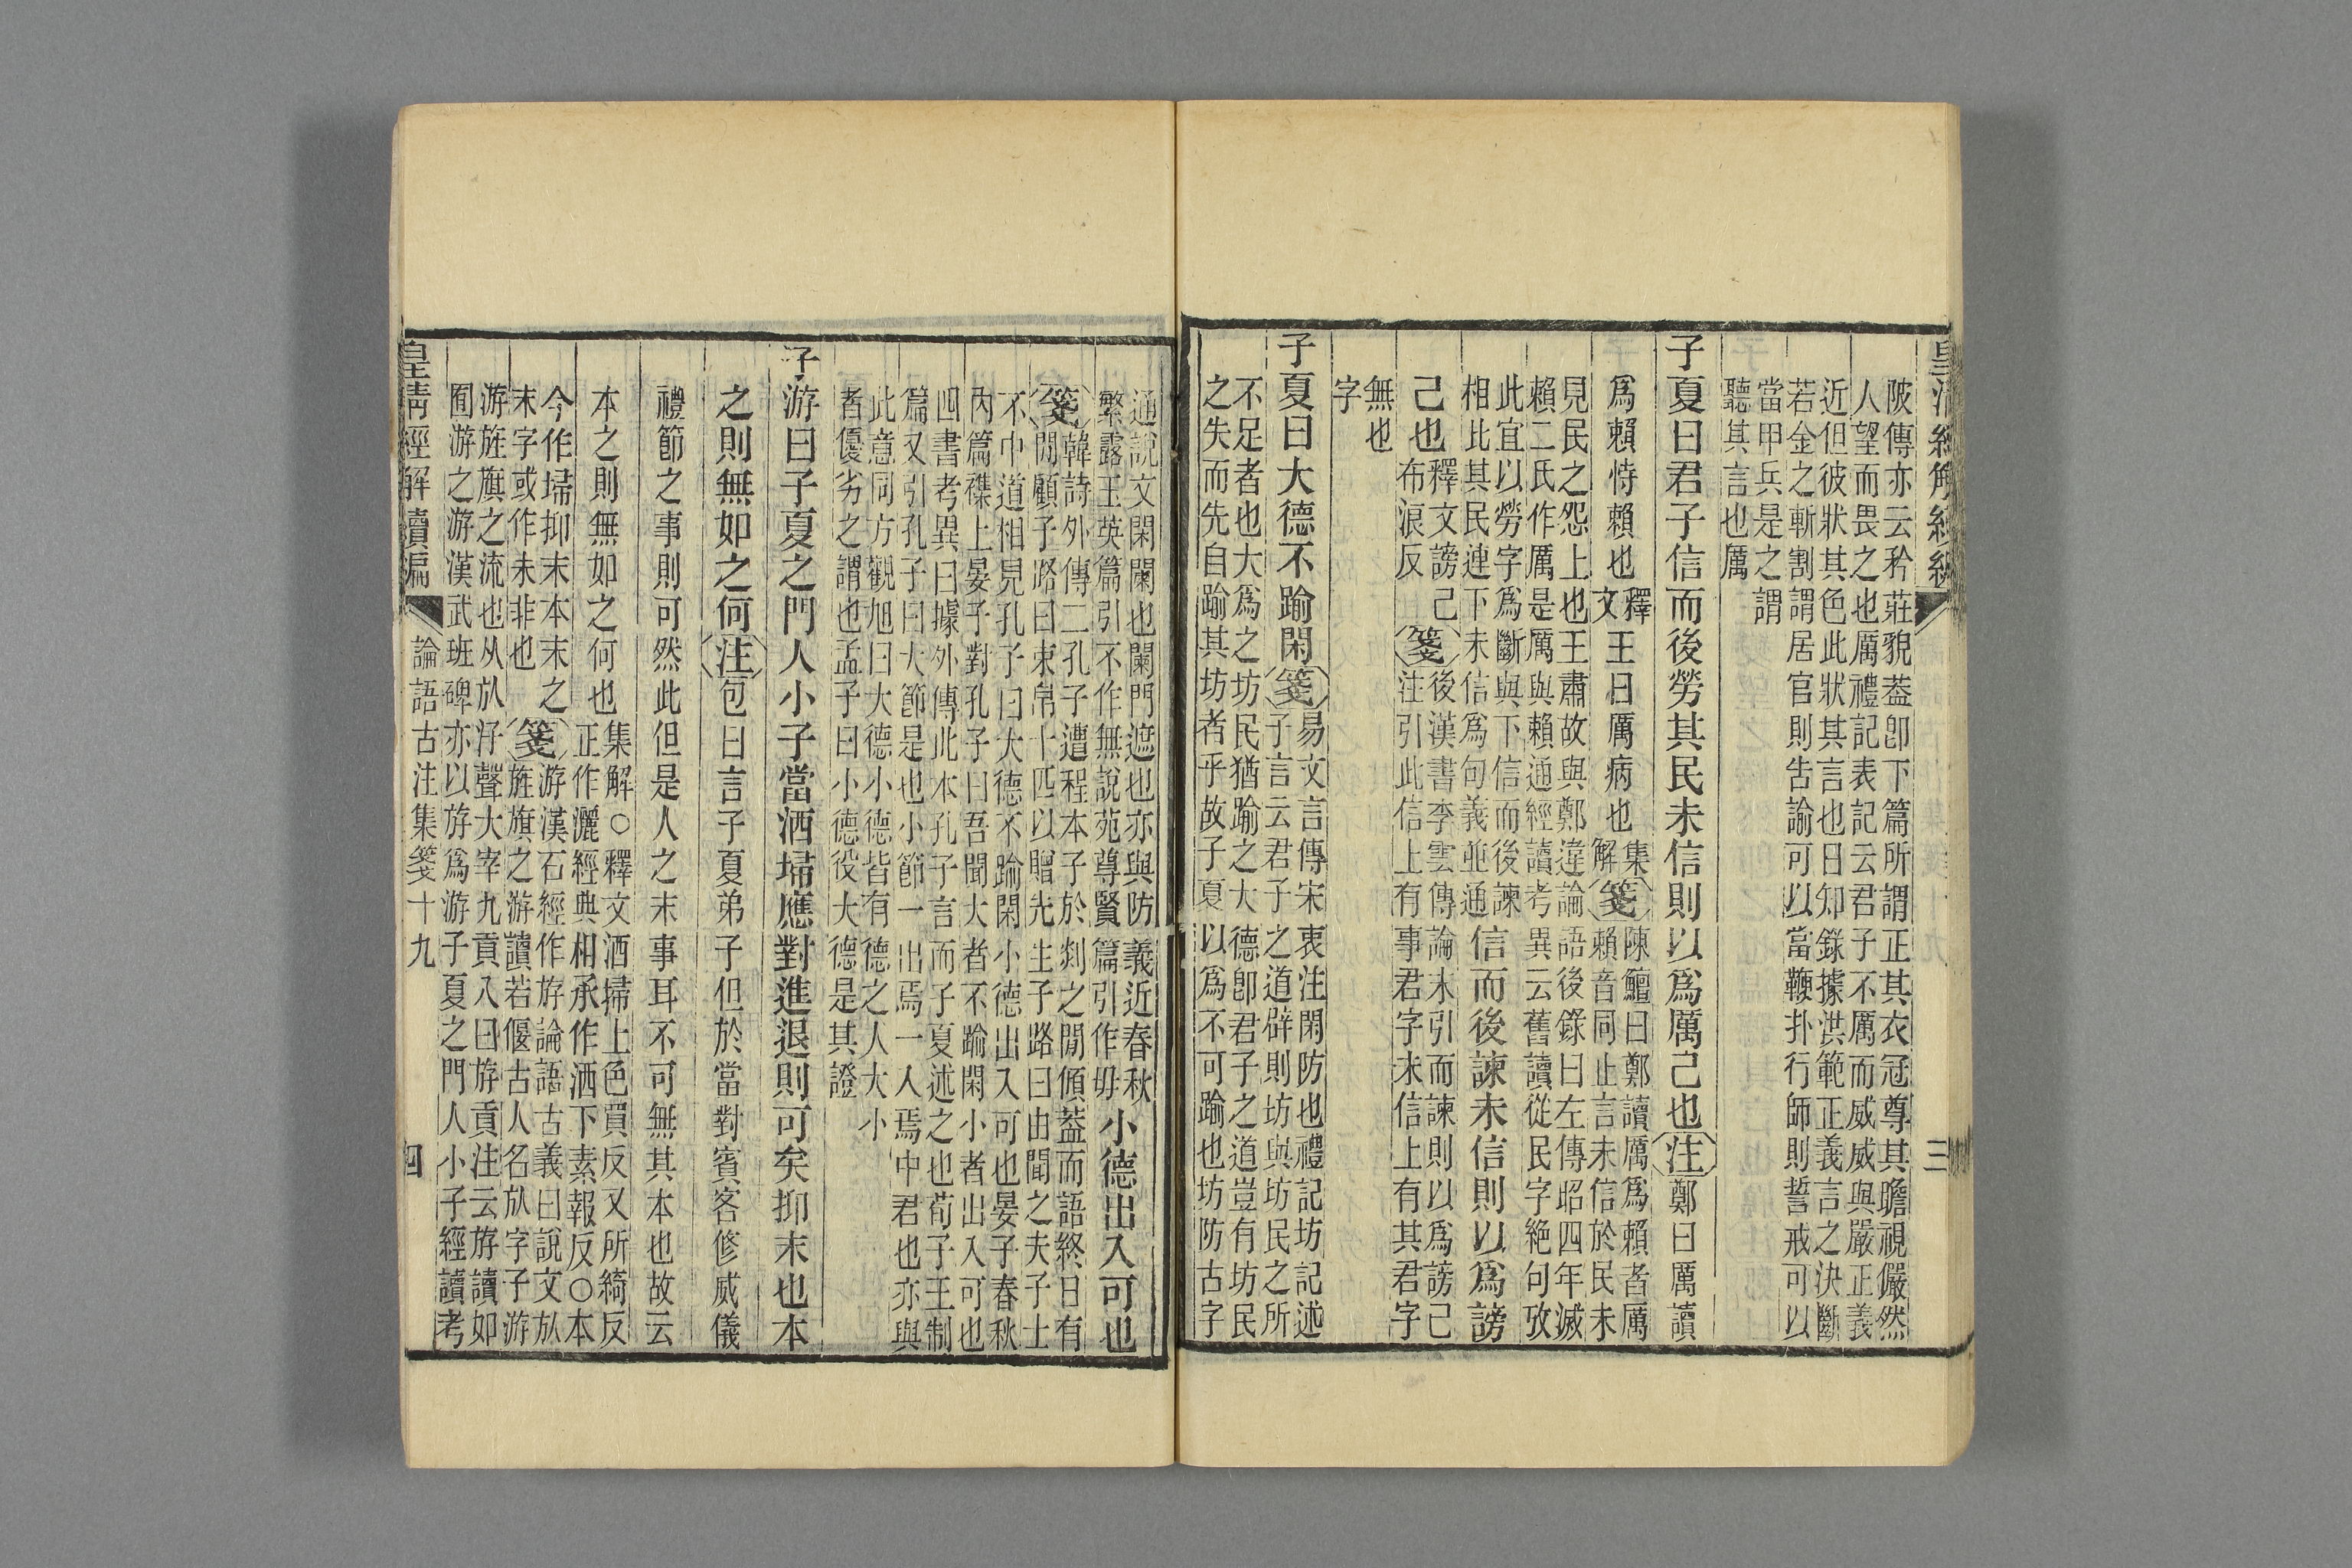 皇清經解續編
三
陂傳亦云矜莊貌葢卽下篇所謂正其衣冠尊其瞻視儼然
人望而畏之也厲禮記表記云君子不厲而威威與嚴正義
近但彼狀其色此狀其言也日知錄據洪範正義言之決斷
若金之斬割謂居官則告諭可以當鞭扑行師則誓戒可以
當甲兵是之謂
聽其言也厲
子夏曰君子信而後勞其民未信則以爲厲己也注鄭曰厲讀
爲賴恃賴也釋文王曰厲病也集解箋陳鱣曰鄭讀厲爲賴者厲
賴音同止言未信於民未
見民之怨上也王肅故與鄭違論語後錄曰左傳昭四年滅
賴二氏作厲是厲與賴通經讀考異云舊讀從民字絶句攷
此宜以勞字爲斷與下信而後諫
相比其民連下未信爲句義並通信而後諫未信則以爲謗
己也釋文謗己
布浪反箋後漢書李雲傳論末引而諫則以爲謗己
注引此信上有事君字未信上有其君字
無也
字
子夏曰大德不踰閑箋易文言傳宋衷注閑防也禮記坊記述
子言云君子之道辟則坊與坊民之所
不足者也大爲之坊民猶踰之大德卽君子之道豈有坊民
之失而先自踰其坊者乎故子夏以爲不可踰也坊防古字
通說文閑闌也闌門遮也亦與防義近春秋
繁露王英篇引不作無說苑尊賢篇引作毋小德出入可也
箋韓詩外傳二孔子遭程本子於剡之閒傾葢而語終日有
閒顧子路曰束帛十匹以贈先生子路曰由聞之夫子士
不中道相見孔子曰大德不踰閑小德出入可也晏子春秋
內篇襍上晏子對孔子曰吾聞大者不踰閑小者出入可也
四書考異曰據外傳此本孔子言而子夏述之也荀子王制
篇又引孔子曰大節是也小節一出焉一入焉中君也亦與
此意同方觀旭曰大德小德皆有德之人大小
者優劣之謂也孟子曰小德役大德是其證
子游曰子夏之門人小子當洒埽應對進退則可矣抑末也本
之則無如之何注包曰言子夏弟子但於當對賓客修威儀
禮節之事則可然此但是人之末事耳不可無其本也故云
本之則無如之何也集解○釋文洒掃上色買反又所綺反
正作灑經典相承作洒下素報反○本
今作埽抑末本末之
末字或作未非也箋游漢石經作斿論語古義曰說文㫃
旌旗之游讀若偃古人名㫃字子游
游旌旗之流也从㫃汓聲大宰九貢入曰斿貢注云斿讀如
囿游之游漢武班碑亦以斿爲游子夏之門人小子經讀考
皇清經解續編
論語古注集箋十九
四